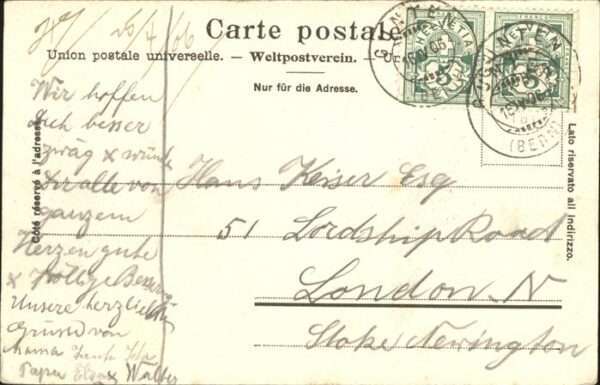 Carte postale
Union postale universelle. — Weltpostverein. —
Nur für die Adresse.
Côté réservé à l'adresse.
Lato riservato all indirizzo.
HELVETIA
5
5
(BERN)
Wir hoffen
Dich besser
zwäg x
Dir alle von
ganzem
Herzen gute
x völlige
Unsere herzlichsten
Grüsse von
Mama
Papa Walter
Hans Keiser Esq
51 Lordship Road
London. N
Stoke Newington